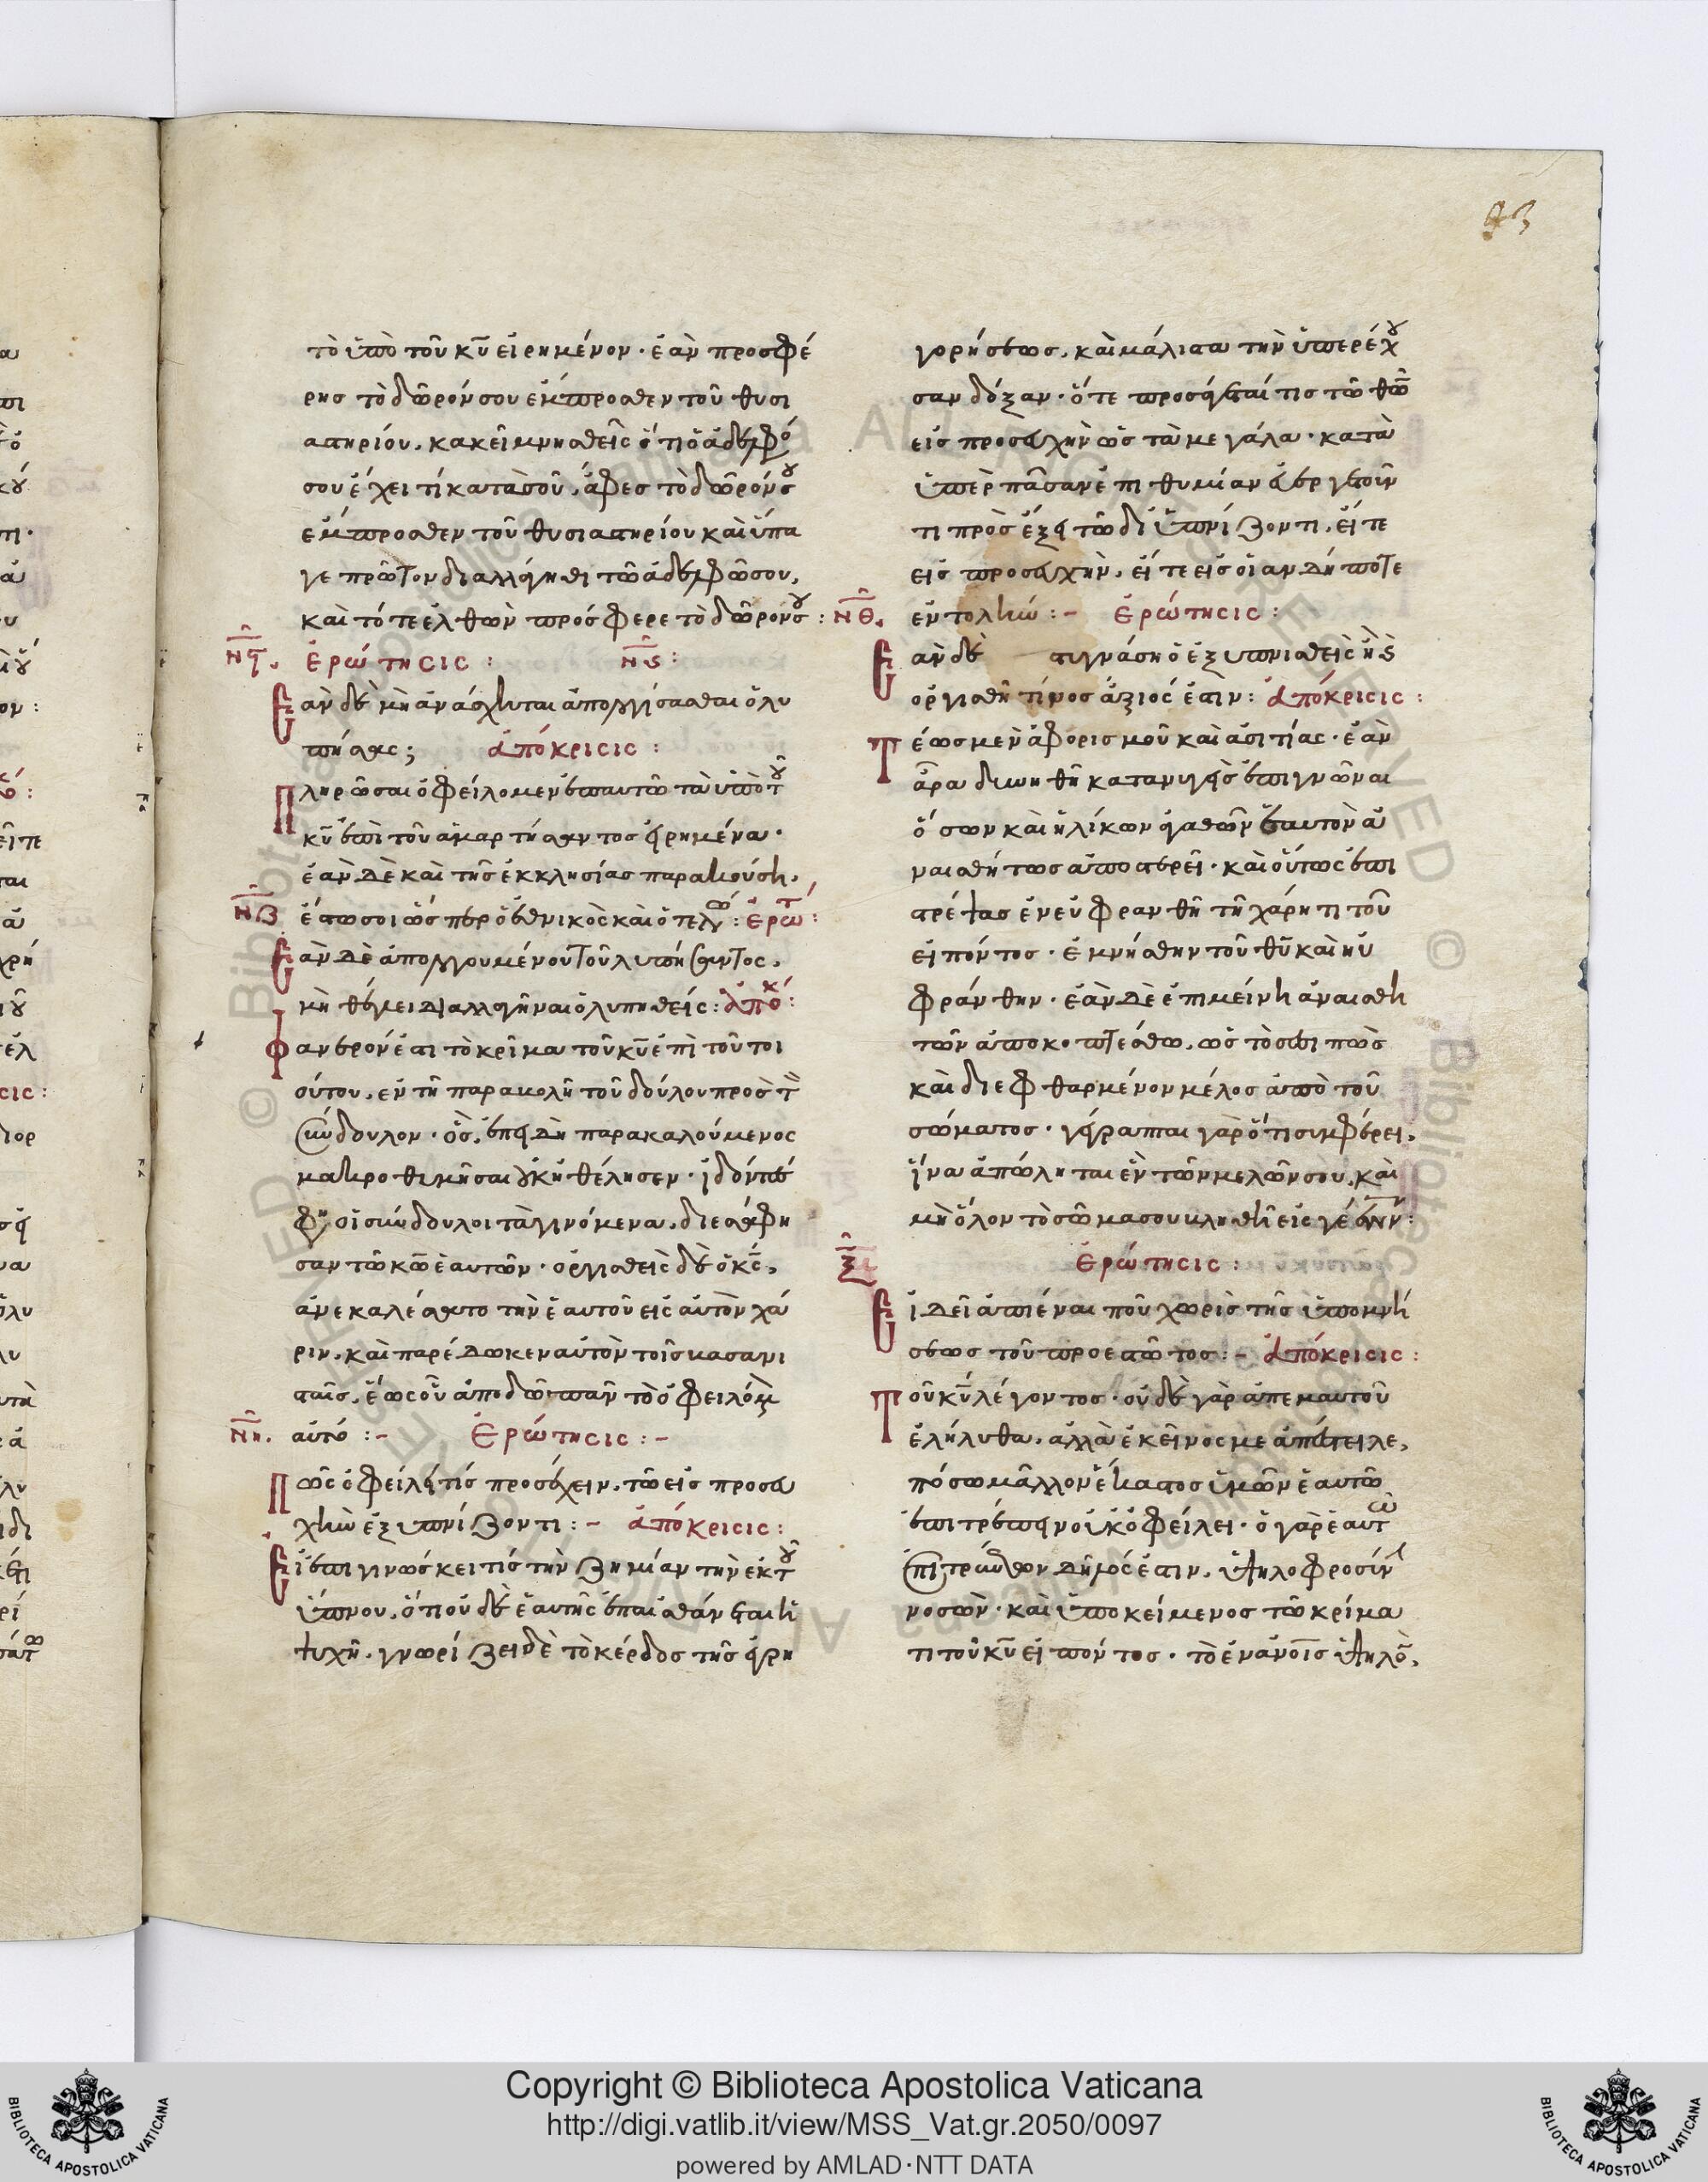 93
τὸ ὑπὸ τοῦ κῡ εἰρημένον· ἐὰν προσφέ
ρης τὸ δῶρόν σου ἔμπροσθεν τοῦ θυσι
αστηρίου, κακεῖ μνησθεὶς ὅτι ὁ ἀδελφό
σου ἔχει τί κατὰ σοῦ, ἄφες τὸ δῶρόν σου
ἔμπροσθεν τοῦ θυσιαστηρίου καὶ ὕπα
γε πρῶτον διαλλάγηθι τῶ ἀδελφῶ σου,
καὶ τότε ἐλθὼν πρόσφερε τὸ δῶρον σου:
ἐρώτησις: νς:
Ἐὰν δὲ μὴ ἀνάσχηται ἀπολογήσασθαι ὁ λυ
πήσας; ἀπόκρισις:
Πληρῶσαι ὀφείλομεν ἐπ αυτῶ τὰ ὑπὸ τοῦ
κῡ ἐπὶ τοῦ ἁμαρτήσαντος εἰρημένα·
ἐὰν δὲ καὶ τῆς ἐκκλησίας παρακούση,
ἔστω σοι ὥσπερ ὁ ἐθνικὸς καὶ ὁ τελώ: ἐρώτ:
Ἐὰν δὲ ἀπολογουμένου τοῦ λυπήσαντος,
μὴ θέλει διαλλαγῆναι ὁ λυπηθείς: ἀπόκ:
Φανερόν ἐστι τὸ κρῖμα τοῦ κῡ ἐπὶ τοῦ τοι
ούτου, ἐν τῆ παραβολῆ τοῦ δούλου πρὸς τ
σύνδουλον· ὃς, ἐπειδὴ παρακαλούμενος
μακροθυμῆσαι οὐκ ἠθέλησεν· ἰδόντες
φη οἱ σύνδουλοι τὰ γινόμενα, διεσάφη
σαν τῶ κω ἑαυτῶν· ὀργισθεὶς δὲ ὁ κς,
ἀνεκαλέσατο τὴν ἑαυτοῦ εἰς αὐτὸν χά
ριν, καὶ παρέδωκεν αὐτὸν τοῖς βασανι
σταῖς, ἕως οὗ ἀποδῶ πᾶν τὸ ὀφειλόμ
νη. αὐτό:- Ἐρώτησις:-
Πῶς ὀφείλει τίς προσέχειν, τῶ εἰς προσευ
χὴν ἐξυπνίζοντι:- ἀπόκρισις:
Εἰ ἐπιγινώσκει τίς τὴν ζημίαν τὴν ἐκ τοῦ
ὕπνου, ὅτι οὐδὲ ἑαυτῆς ἐπαισθάνεται ἡ
ψυχή, γνωρίζει δὲ τὸ κέρδος τῆς ἐγρη
γορήσεως, καὶ μάλιστα τὴν ὑπερέχου
σαν δόξαν· ὅτε προσάγεταί τις τῶ θῶ
εἰς προσευχὴν ὡς τὰ μεγάλα· κατὰ
ὑπὲρ πᾶσαν ἐπιθυμίαν εὐεργετοῦν
τι πρὸς ἕξει τῶ διϋπνίζοντι, εἴτε
εἰς προσευχὴν, εἴτε εἰς οἱανδήποτε
νθ. ἐντολὴν:- Ἐρώτησις:
Ἐὰν δὲ στυγνάση ὁ ἐξυπνισθεὶς ἢ
ὀργισθῆ τίνος ἄξιός ἐστιν: ἀπόκρισις:
Τέως μὲν ἀφορισμοῦ καὶ ἀσιτίας· ἐὰν
ἄρα δυνηθῆ κατανυγεὶς ἐπιγνῶναι
ὅσων καὶ ἡλίκων ἀγαθῶν ἑαυτὸν ἀ
ναισθήτως ἀποστερεῖ· καὶ οὕτως ἐπι
στρέψας ἐνευφρανθῆ τῆ χάρητι τοῦ
εἰπόντος· ἐμνήσθην τοῦ θῡ καὶ ηὐ
φράνθην· ἐὰν δὲ ἐπιμείνη ἀναισθη
τῶν ἀποκοπτέσθω, ὡς τὸ σεσηπὼς
καὶ διεφθαρμένον μέλος ἀπὸ τοῦ
σώματος· γέγραπται γὰρ ὅτι συμφέρει,
ἵνα ἀπόληται ἓν τῶν μελῶν σου, καὶ
μὴ ὅλον τὸ σῶμα σου βληθῆ εἰς γέενν:
ξ Ἐρώτησις:
Εἰ δεῖ ἀπιέναι ποῦ χωρὶς τῆς ὑπομνή
σεως τοῦ προεστῶτος:- ἀπόκρισις:
Τοῦ κῡ λέγοντος· οὐδὲ γὰρ ἀπεμαυτοῦ
ἐλήλυθα, ἀλλὰ ἐκεῖνος με ἀπέστειλε,
πόσω μᾶλλον ἕκαστος ὑμῶν ἑαυτῶ
ἐπιτρέπειν οὐκ ὀφείλει· ὁ γὰρ ἑαυτῶ
ἐπιτρέπων δῆλός ἐστιν, ὑψηλοφροσύνη
νοσῶν· καὶ ὑποκείμενος τῶ κρίμα
τι τοῦ κῡ εἰπόντος· τὸ ἐν ἀνοις ὑψηλὸ,
Copyright © Biblioteca Apostolica Vaticana
http://digi.vatlib.it/view/MSS_Vat.gr.2050/0097
powered by AMLAD·NTT DATA